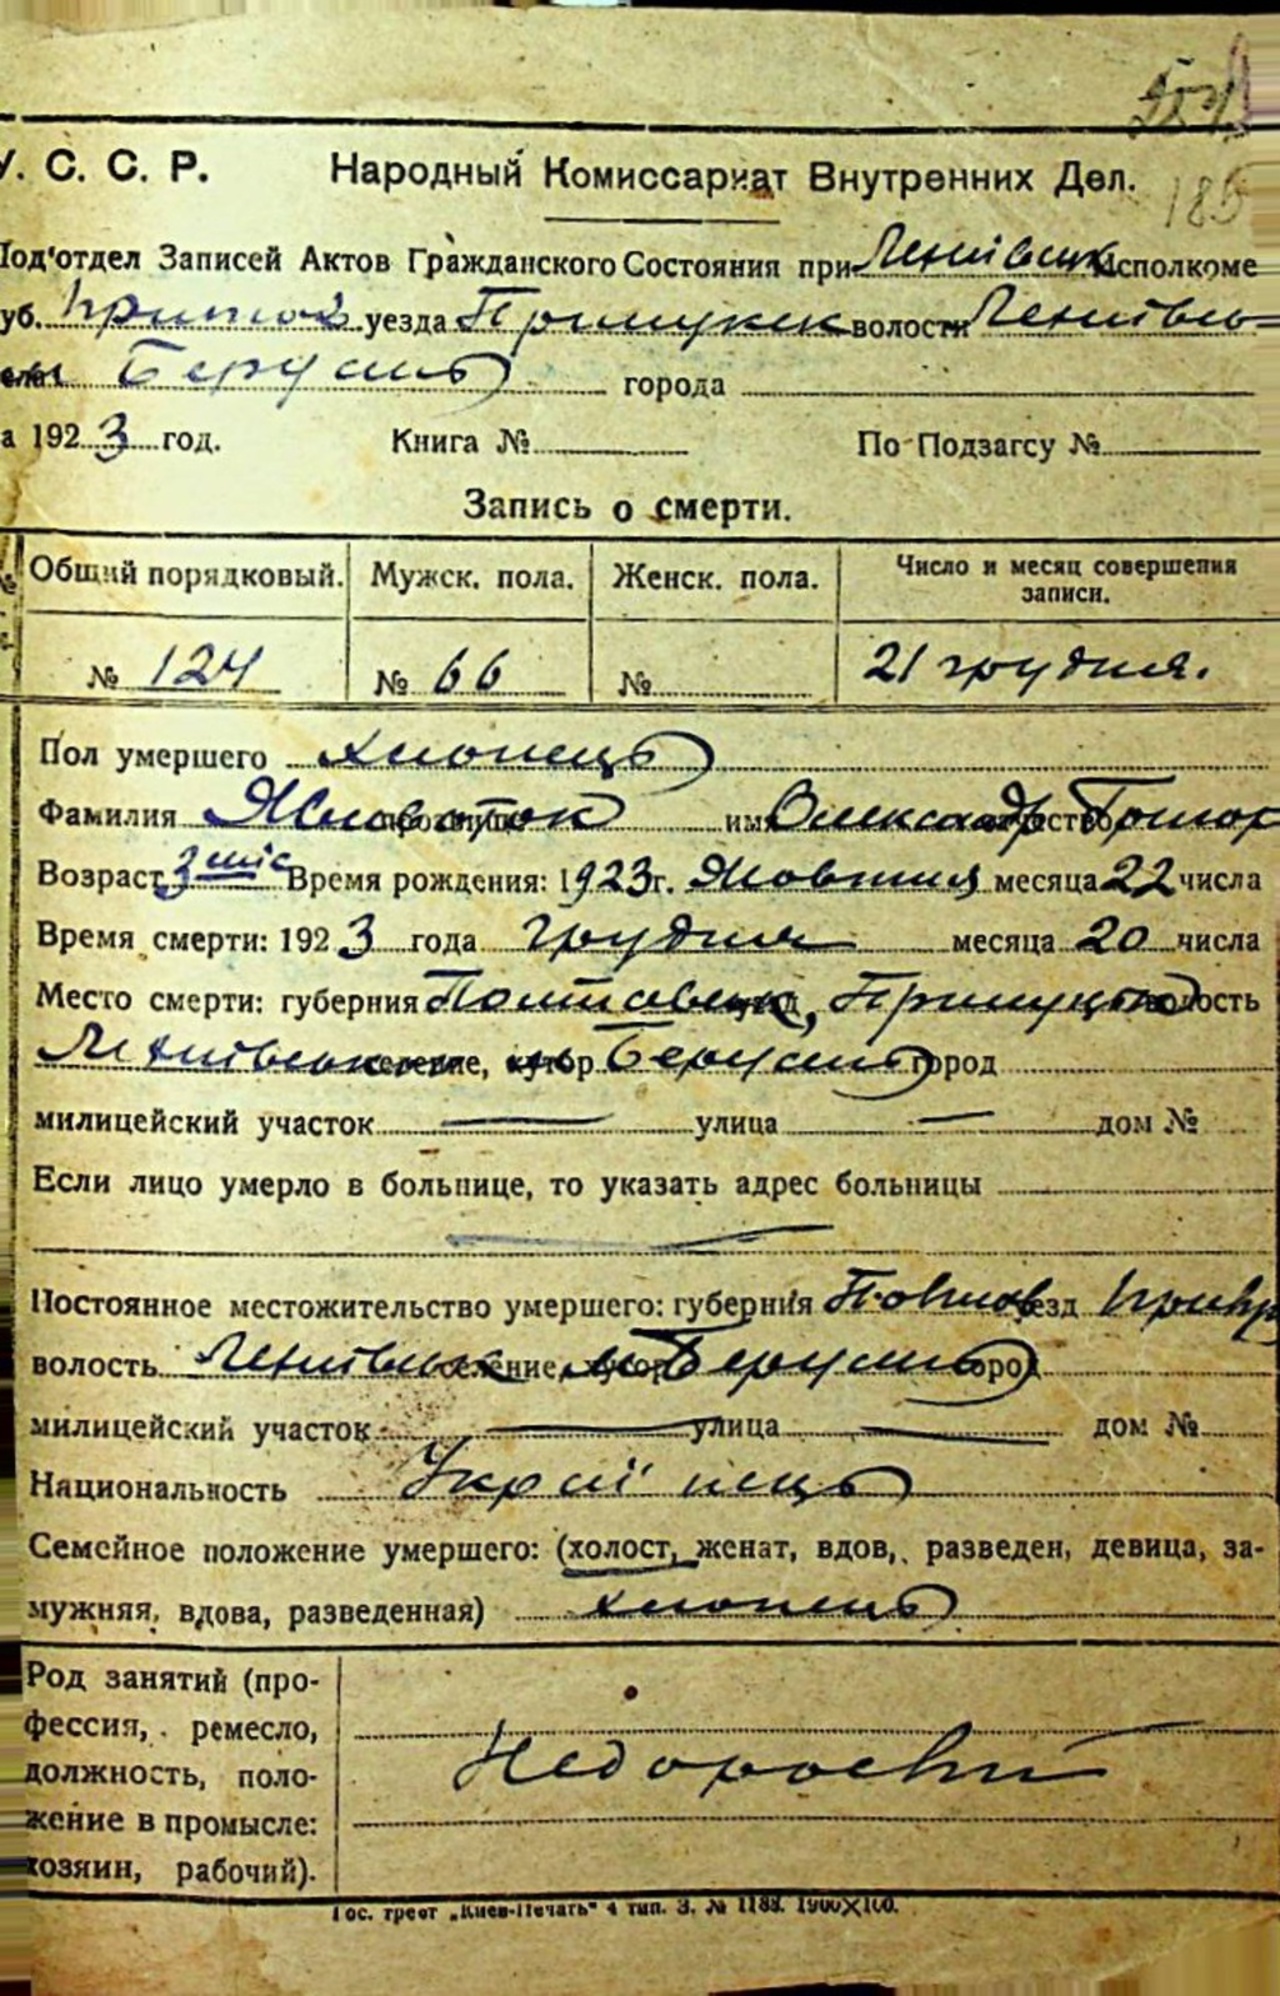 185
У. С. С. Р. Народный Комиссариат Внутренних Дел.
Под'отдел Записей Актов Гражданского Состояния при Исполкоме
уб. уезда волости
города
а 1923 год. Книга № По Подзагсу №
Запись о смерти.
Общий порядковый. Мужск. пола. Женск. пола. Число и месяц совершения записи.
№ 124 № 66 № 21 грудня.
Пол умершего хлопець
Фамилия имя Олександр
Возраст 3 міс Время рождения: 1923 г. Жовтня месяца 22 числа
Время смерти: 1923 года грудня месяца 20 числа
Место смерти: губерния Полтавськ, Прилуцьк волость
селение, хутор город
милицейский участок — улица — дом №
Если лицо умерло в больнице, то указать адрес больницы
Постоянное местожительство умершего: губерния уезд
волость селение, хутор город
милицейский участок — улица — дом №
Национальность Украї нець
Семейное положение умершего: (холост, женат, вдов, разведен, девица, за-
мужняя, вдова, разведенная) хлопець
Род занятий (про-
фессия, ремесло,
должность, поло-
жение в промысле:
хозяин, рабочий).
Недорослий
Гос. трест „Киев-Печать" 4 тип. З. № 1188. 1900×100.